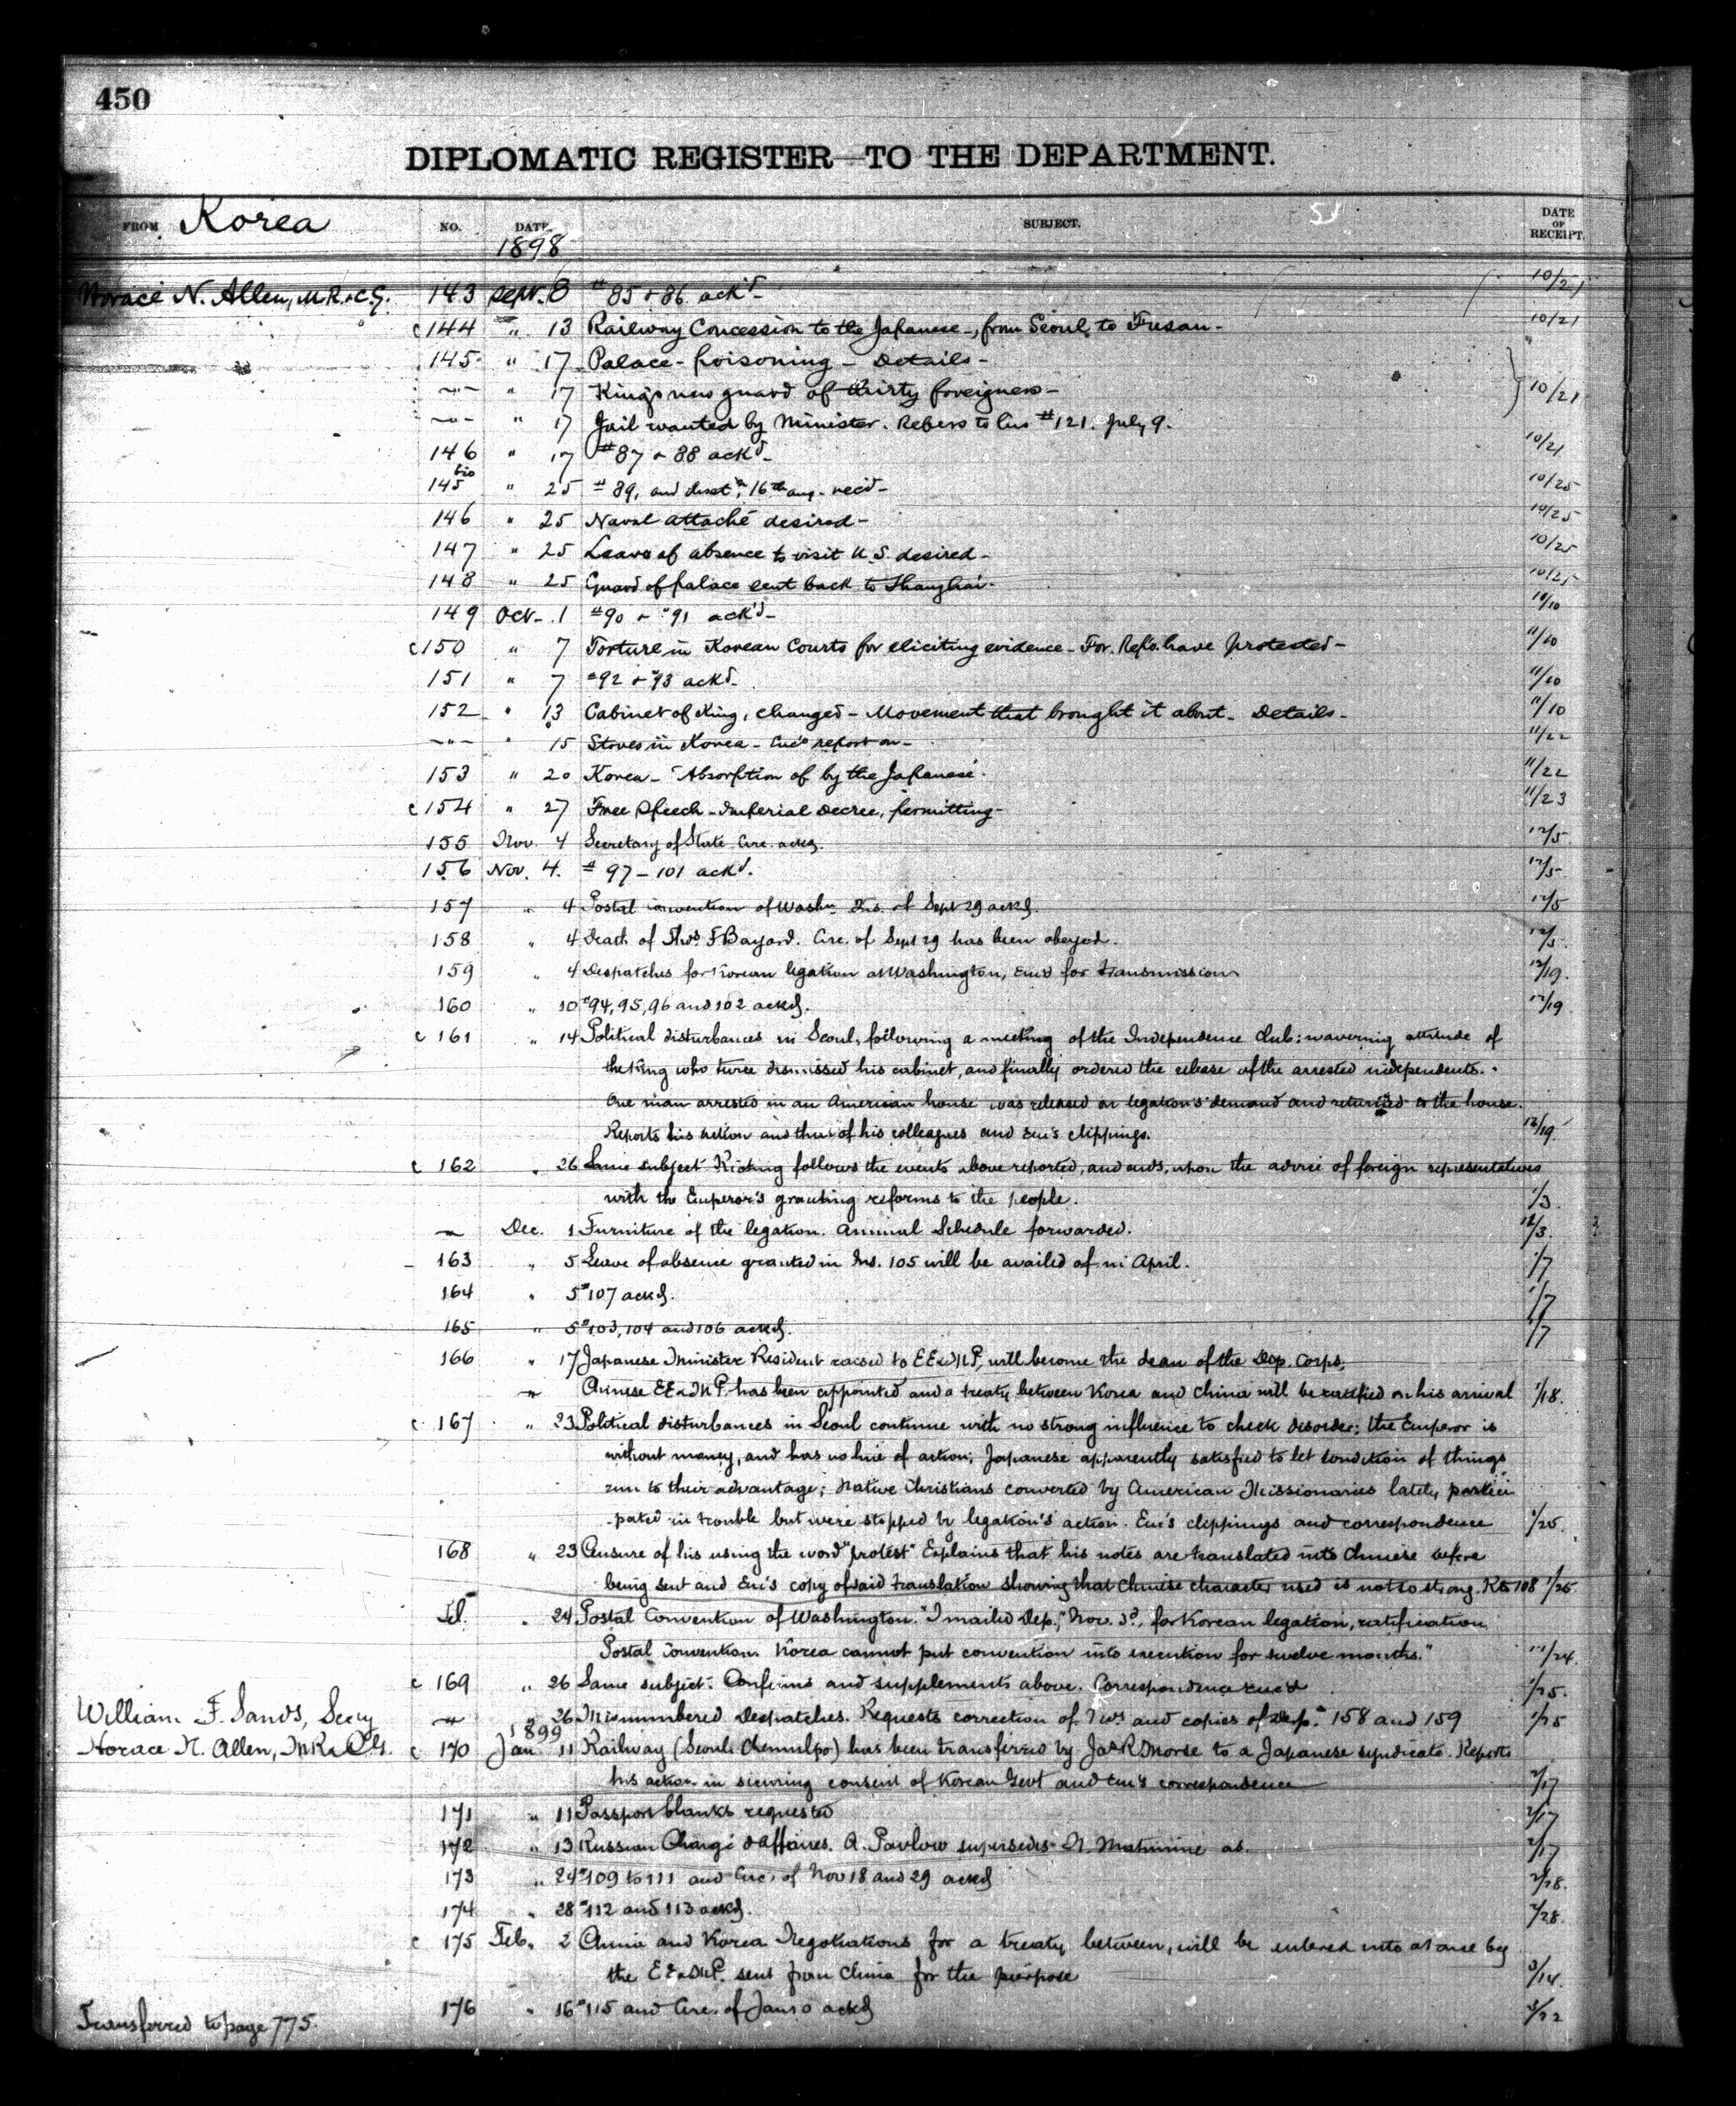 450
DIPLOMATIC REGISTER—TO THE DEPARTMENT.
FROM Korea NO. DATE. SUBJECT. DATE OF RECEIPT.
1898
Horace N. Allen, M.R. & C.G. 143 Sept. 8 # 85 & 86 ack'd— 10/21
c 144 " 13 Railway Concession to the Japanese—, from Seoul to Fusan— 10/21
145 " 17 Palace-poisoning — Details—
—"— " 17 King's new guard of thirty foreigners— } 10/21
—"— " 17 Jail wanted by Minister. Refers to his #121. July 9.
146 " 17 #87 & 88 ack'd— 10/21
145 bis " 25 # 89, and inst'n, 16th Aug. rec'd— 10/25
146 " 25 Naval attaché desired— 10/25
147 " 25 Leave of absence to visit U.S. desired— 10/25
148 " 25 Guard of palace sent back to Shanghai— 10/25
149 Oct. 1 #90 & #91 ack'd—
c 150 " 7 Torture in Korean Courts for eliciting evidence— For. Rep's. have protested— 11/10
151 " 7 #92 & #93 ack'd— 11/10
152 " 13 Cabinet of King, changed— Movement that brought it about— Details— 11/10
—"— " 15 Stoves in Korea— Enc's report on— 11/22
153 " 20 Korea— "Absorption of by the Japanese. 11/22
c 154 " 27 Free Speech—Imperial Decree, permitting— 11/23
155 Nov. 4 Secretary of State Circ. ackd. 12/5
156 Nov. 4. # 97—101 ack'd. 12/5
157 " 4 Postal convention of Washn. Ins. of Sept 29 ackd. 12/5
158 " 4 Death of Thos. F Bayard. Circ. of Sept 29 has been obeyed. 12/5
159 " 4 Despatches for Korean legation at Washington, encs for transmission 12/19.
160 " 10 #94, 95, 96 and 102 ackd. 12/19
c 161 " 14 Political disturbances in Seoul, following a meeting of the Independence Club: wavering attitude of
the King who twice dismissed his cabinet, and finally ordered the release of the arrested independents.
One man arrested in an American house was released on legation's demand and returned to the house.
Reports his action and that of his colleagues and enc's clippings. 12/19.
c 162 " 26 Same subject Rioting follows the events above reported, and ends, upon the advice of foreign representatives
with the Emperor's granting reforms to the people. 1/3.
—"— Dec. 1 Furniture of the legation. Annual Schedule forwarded.
163 " 5 Leave of absence granted in Ins. 105 will be availed of in April. 1/7
164 " 5 #107 ackd. 1/7
165 " 5 #103, 104 and 106 ackd. 1/7
166 " 17 Japanese Minister Resident raised to EE&MP, will become the dean of the Dip. Corps;
—"— Chinese EE&MP. has been appointed and a treaty between Korea and China will be ratified on his arrival 1/18.
c 167 " 23 Political disturbances in Seoul continue with no strong influence to check disorder; the Emperor is
without money, and has no line of action; Japanese apparently satisfied to let condition of things
run to their advantage; Native Christians converted by American Missionaries lately partici
pated in trouble but were stopped by legation's action. Enc's clippings and correspondence 1/25.
168 " 23 Censure of his using the word "protest" Explains that his notes are translated into Chinese before
being sent and Enc's copy of said translation showing that Chinese character used is not so strong. R to 108 1/25
Tel. " 24 Postal Convention of Washington. "I mailed Dep., Nov. 3d, for Korean legation, ratification
Postal Convention. Korea cannot put convention into execution for twelve months."
c 169 " 26 Same subject. Confirms and supplements above. Correspondence enc'd 1/25.
William F. Sands, Secy —"— " 26 Misnumbered Despatches. Requests correction of Nos. and copies of Dep. 158 and 159 1/25
1899
Horace N. Allen, MR&CG. c 170 Jan. 11 Railway (Seoul Chemulpo) has been transferred by Jas R Morse to a Japanese syndicate. Reports
his action in securing consent of Korean Govt and enc's correspondence 2/17
171 " 11 Passport blanks requested 2/17
172 " 13 Russian Chargé d'affaires. A. Pavlow supersedes N. Matunine as. 2/17
173 " 24 #109 to 111 and Circ. of Nov 18 and 29 ackd 2/28.
174 " 28 #112 and 113 ackd. 2/28.
c 175 Feb. 2 China and Korea Negotiations for a treaty between, will be entered into at once by
the EE&MP. sent from China for the purpose 3/14.
176 " 16 #115 and Circ. of Jan 10 ackd 3/22
Transferred to page 775.